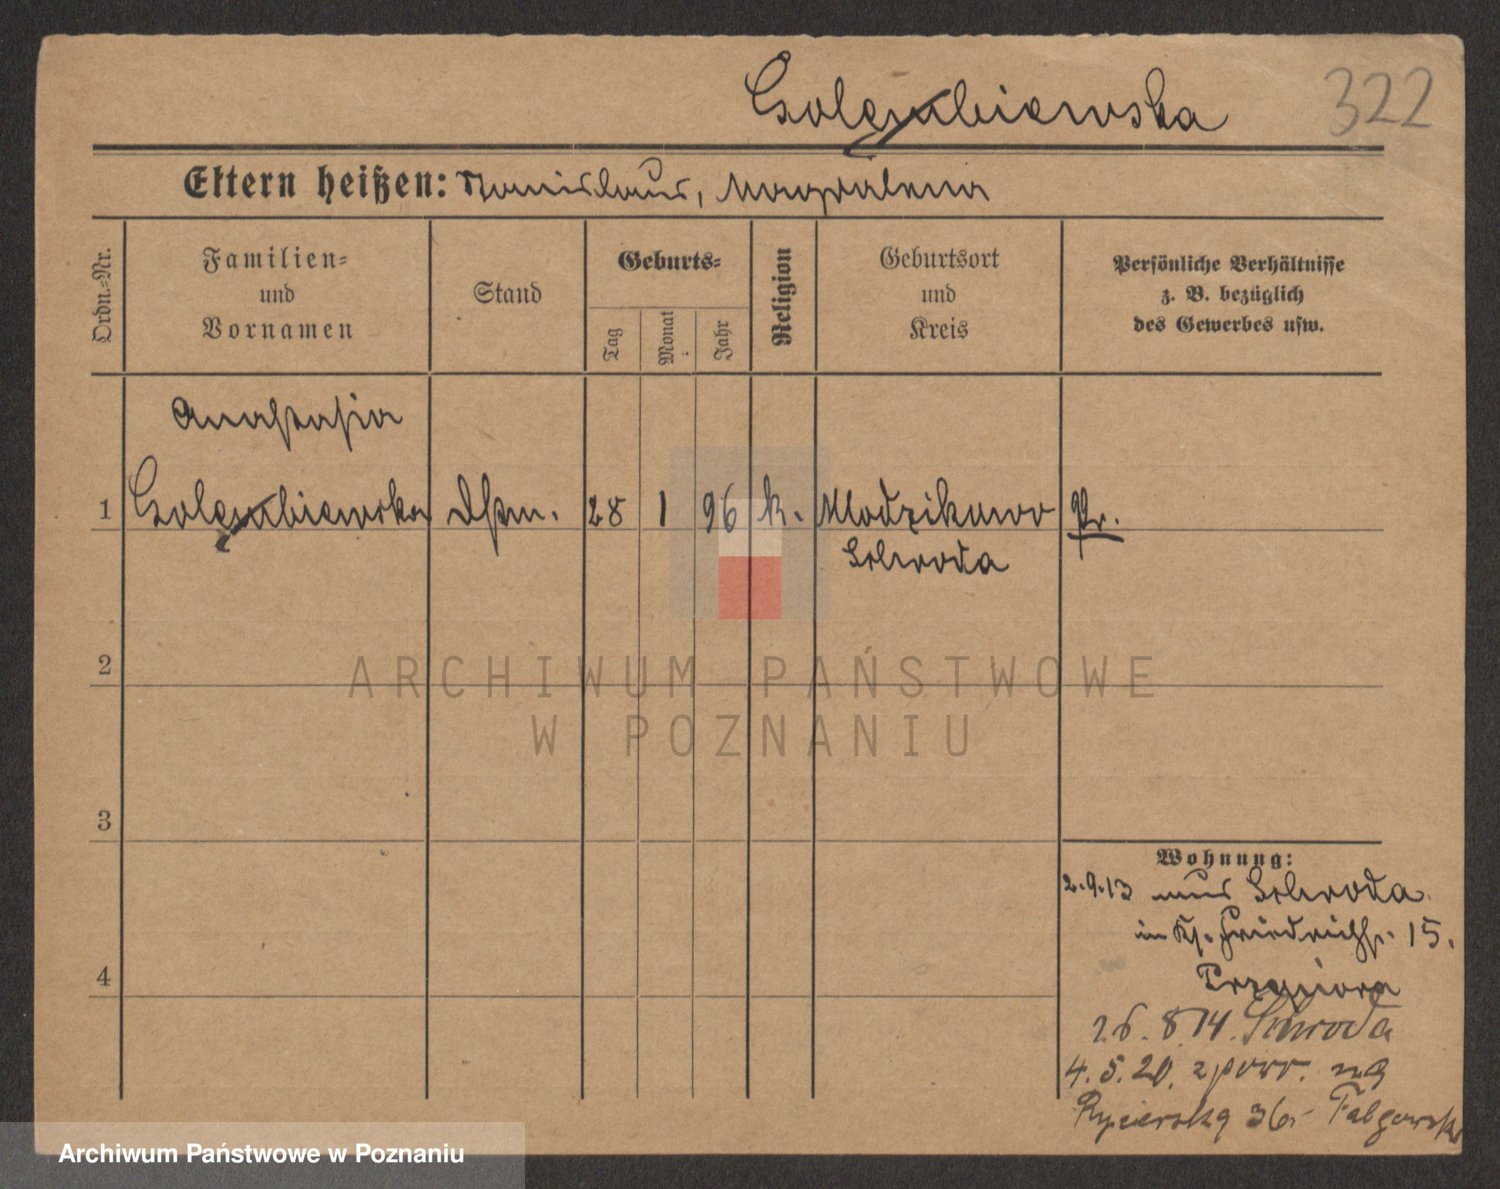 Golembiewska 322
Eltern heißen: Stanislaus, Magdalena
Ordn.-Nr.
Familien-
und
Vornamen
Stand
Geburts-
Tag
Monat
Jahr
Religion
Geburtsort
und
Kreis
Persönliche Verhältnisse
z. B. bezüglich
des Gewerbes usw.
Anastasia
1 Golembiewska 28 1 96 k. Mlodzikowo Pr.
Schroda
2
ARCHIWUM PAŃSTWOWE
W POZNANIU
3
Wohnung:
2.9.13 aus Schroda
in Friedrichstr. 15.
4
26.8.14. Schroda
4.5.20. z powr. na
Rycerską 36
Archiwum Państwowe w Poznaniu